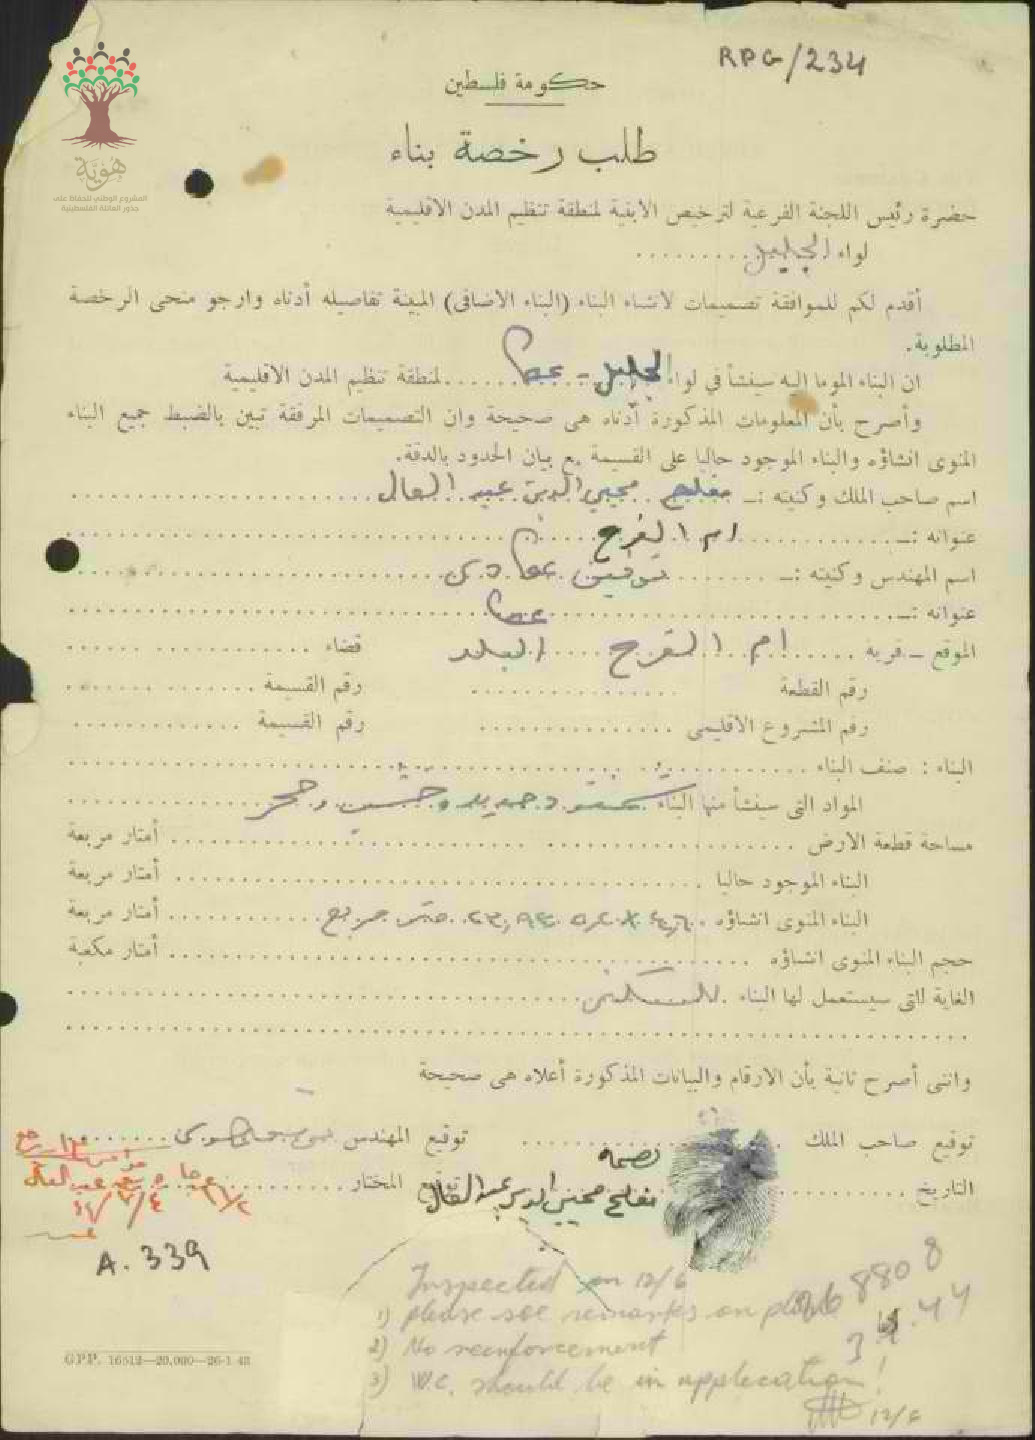 RPG/234
هُويَّة
المشروع الوطني للحفاظ على
جذور العائلة الفلسطينية
حكومة فلسطين
طلب رخصة بناء
حضرة رئيس اللجنة الفرعية لترخيص الابنية لمنطقة تنظيم المدن الاقليمية
لواء الجليل
أقدم لكم للموافقة تصميمات لانشاء البناء (البناء الاضافى) المبينة تفاصيله أدناه وارجو منحى الرخصة
المطلوبة.
ان البناء الموما اليه سينشأ في لواء الجليل - عكا لمنطقة تنظيم المدن الاقليمية
وأصرح بأن المعلومات المذكورة أدناه هى صحيحة وان التصميمات المرفقة تبين بالضبط جميع البناء
المنوى انشاؤه والبناء الموجود حاليا على القسيمة مع بيان الحدود بالدقة.
اسم صاحب الملك وكنيته :ـ مفلح محيي الدين عبد العال
عنوانه :ـ ام الفرج
اسم المهندس وكنيته :ـ توفيق
عنوانه :ـ عكا
الموقع ــ قرية ام الفرج البلد قضاء
رقم القطعة رقم القسيمة
رقم المشروع الاقليمى رقم القسيمة
البناء : صنف البناء
المواد التى سينشأ منها البناء وحديد وخشب وحجر
مساحة قطعة الارض أمتار مربعة
البناء الموجود حاليا أمتار مربعة
البناء المنوى انشاؤه ٤,٦٠ × ٥,٢٠ ٢٣,٩٢ متر مربع أمتار مربعة
حجم البناء المنوى انشاؤه أمتار مكعبة
الغاية التى سيستعمل لها البناء للسكن
وانى أصرح ثانية بأن الارقام والبيانات المذكورة أعلاه هى صحيحة
توقيع صاحب الملك توقيع المهندس
بصمة
التاريخ مفلح محيي الدين عبد العال توقيع المختار
A. 339
Inspected on 12/6
1) please see remarks on plan
2) No reinforcement
3) W.C. should be in application!
12/6
GPP. 16512—20,000—26-1-43